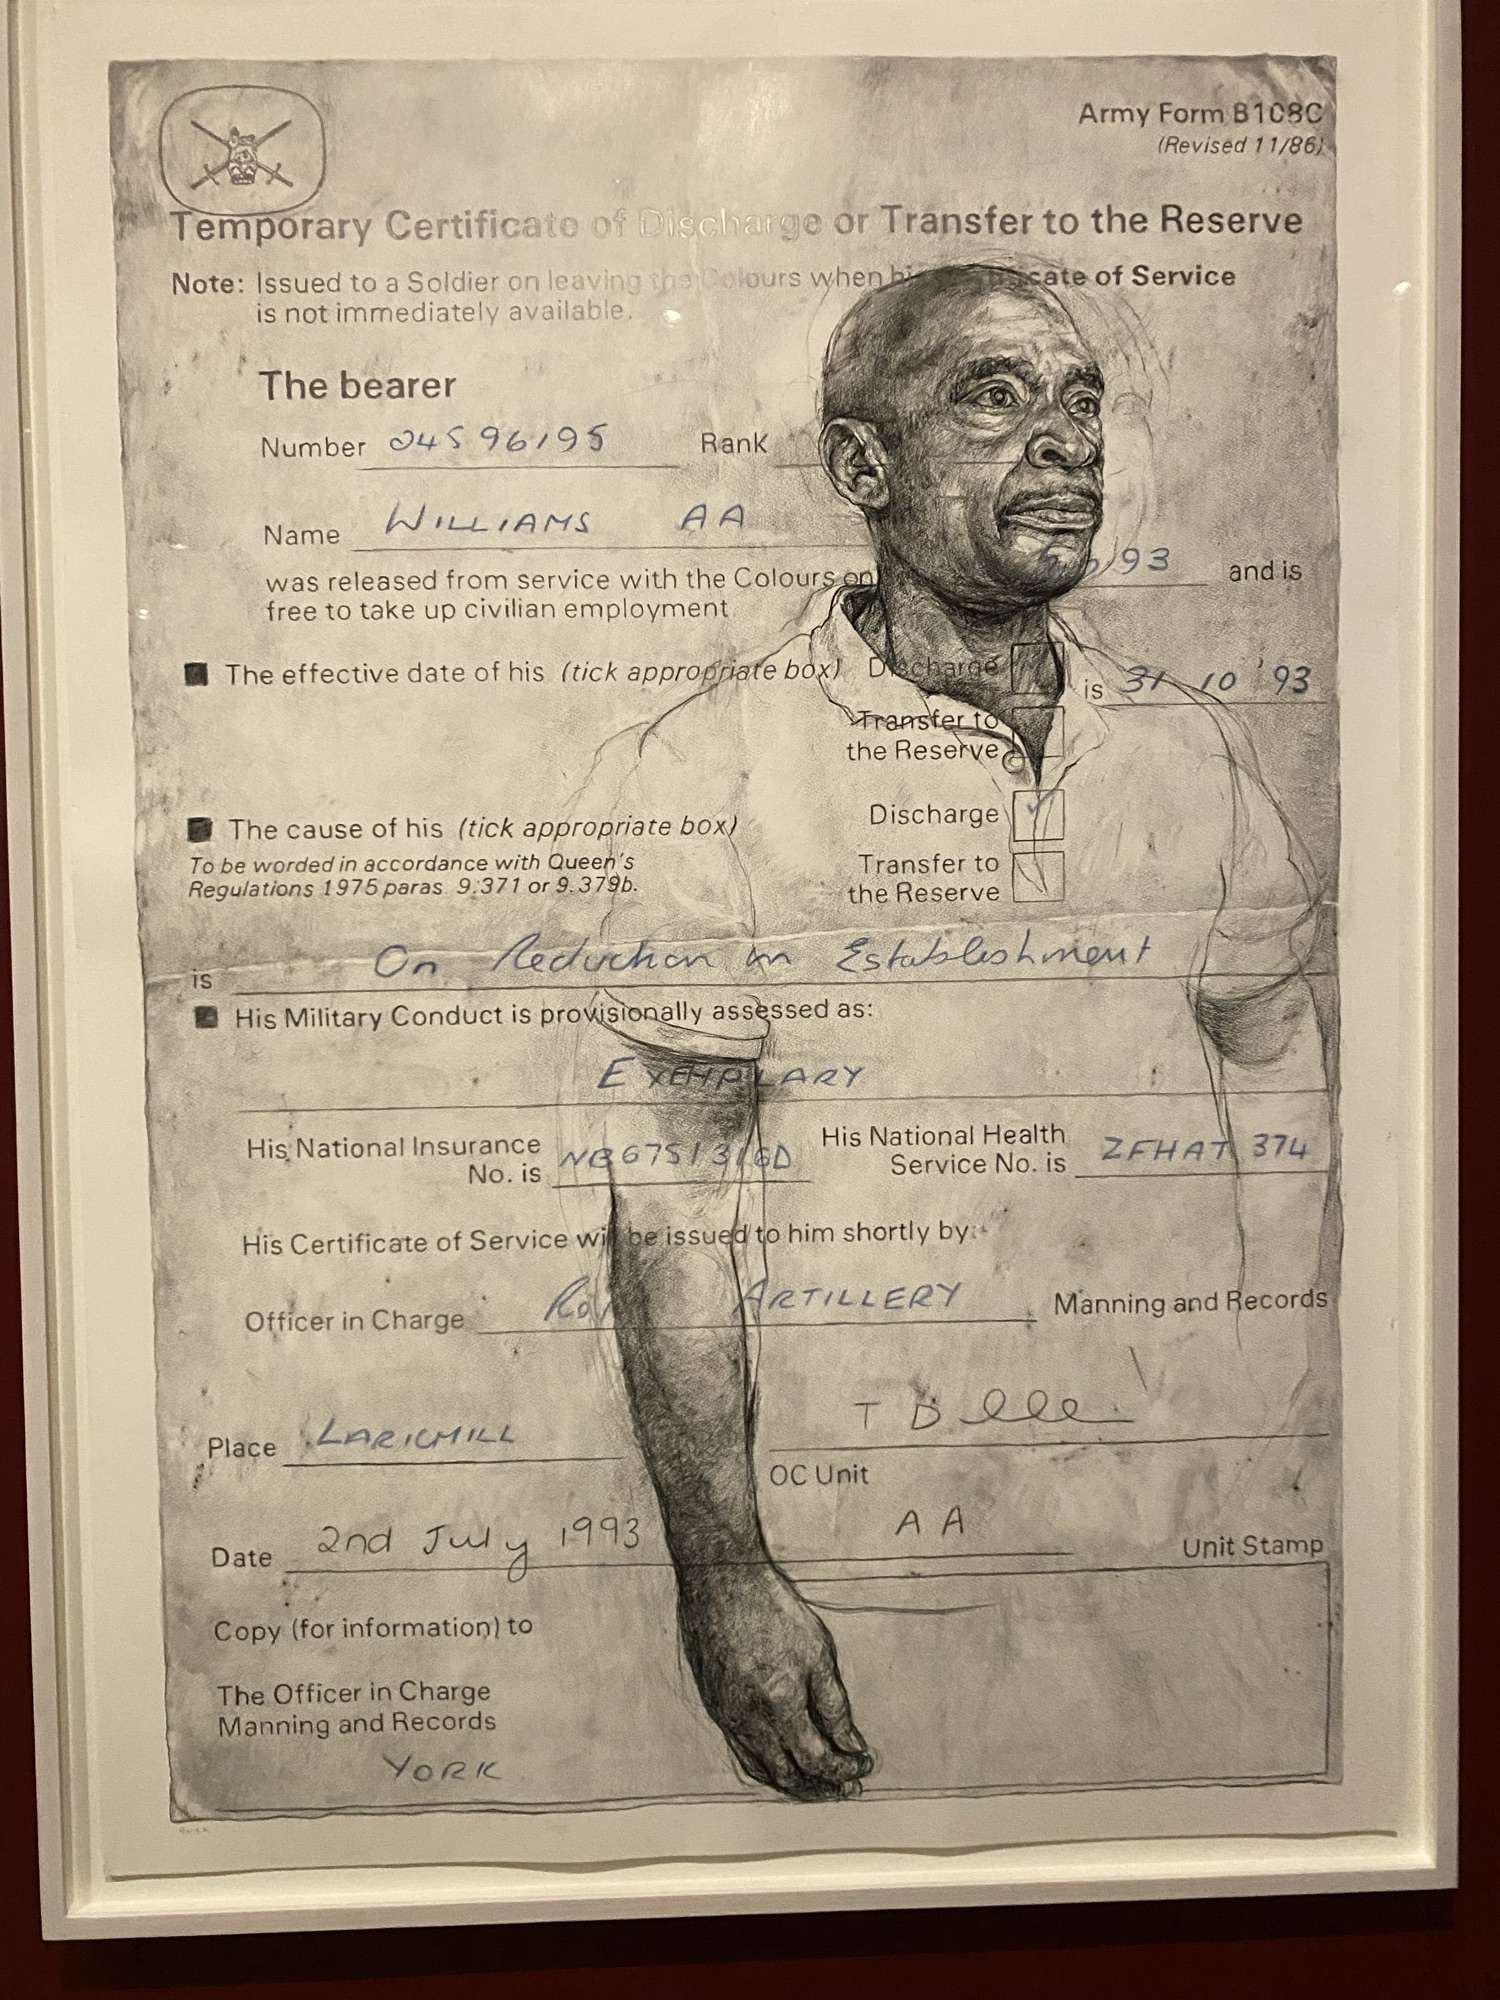 Army Form B108C
(Revised 11/86)
Temporary Certificate of Discharge or Transfer to the Reserve
Note: Issued to a Soldier on leaving the Colours when of Service
is not immediately available.
The bearer
Number 04596195 Rank
Name WILLIAMS AA
was released from service with the Colours on 93 and is
free to take up civilian employment
The effective date of his (tick appropriate box) Discharge is 31 10 '93
Transfer to
the Reserve
The cause of his (tick appropriate box) Discharge
To be worded in accordance with Queen's
Regulations 1975 paras 9.371 or 9.379b.
Transfer to
the Reserve
is On Reduction in Establishment
His Military Conduct is provisionally assessed as:
EXEMPLARY
His National Insurance
No. is NB6751316D
His National Health
Service No. is ZFHAT 374
His Certificate of Service will be issued to him shortly by:
Officer in Charge ARTILLERY Manning and Records
Place LARKHILL
OC Unit
Date 2nd July 1993
A A
Unit Stamp
Copy (for information) to
The Officer in Charge
Manning and Records
YORK